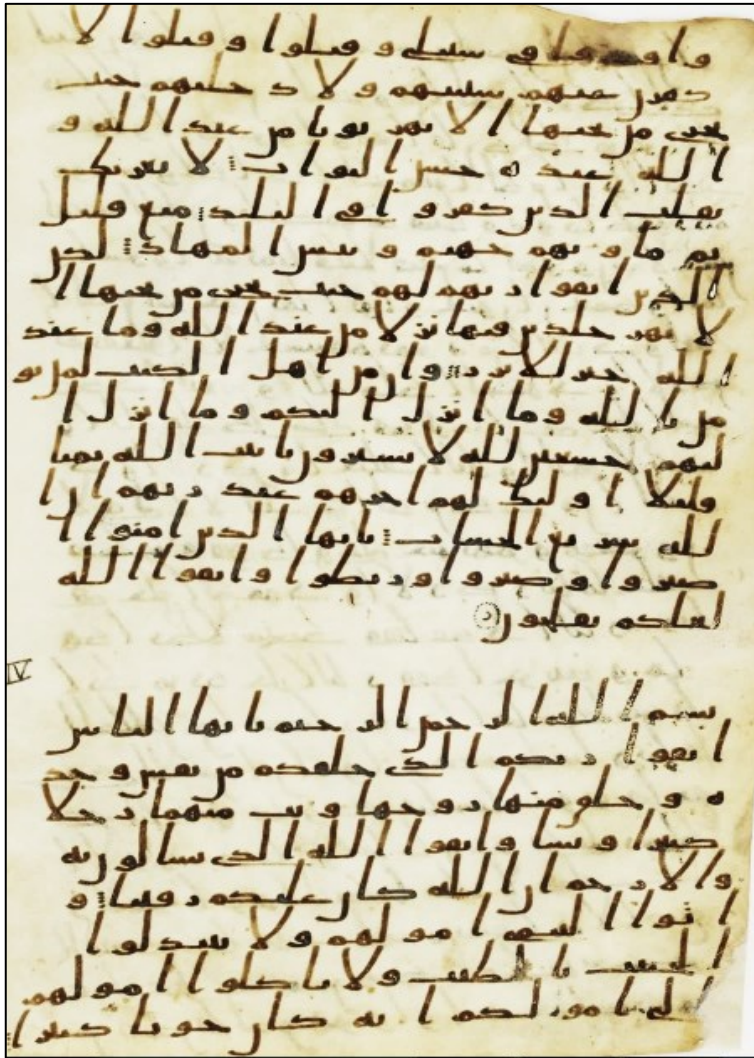 واوذوا في سبيلي وقتلوا وقتلوا لا
كفرن عنهم سيتهم ولادخلنهم جنت
تجري من تحتها الانهر ثوابا من عند الله و
الله عنده حسن الثواب لا يغرنك
تقلب الذين كفروا في البلد متع قليل
ثم ماويهم جهنم وبيس المهاد لكن
الذين اتقوا ربهم لهم جنت تجري من تحتها ا
لانهر خلدين فيها نزلا من عند الله وما عند
الله خير للابرر وان من اهل الكتب لمن يو
من بالله وما انزل اليكم وما انزل ا
ليهم خشعين لله لا يشترون بايت الله ثمنا
قليلا اوليك لهم اجرهم عند ربهم ان ا
لله سريع الحساب يايها الذين امنوا ا
صبروا وصبروا وربطوا واتقوا الله
لعلكم تفلحون
IV
بسم الله الرحمن الرحيم يايها الناس
اتقوا ربكم الذي خلقكم من نفس وحد
ه وخلق منها زوجها وبث منهما رجلا
كثيرا ونسا واتقوا الله الذي تسالون به
والارحم ان الله كان عليكم رقيبا و
اتوا اليتمى امولهم ولا تبدلوا
الخبيث بالطيب ولا تاكلوا امولهم
الى امولكم انه كان حوبا كبيرا